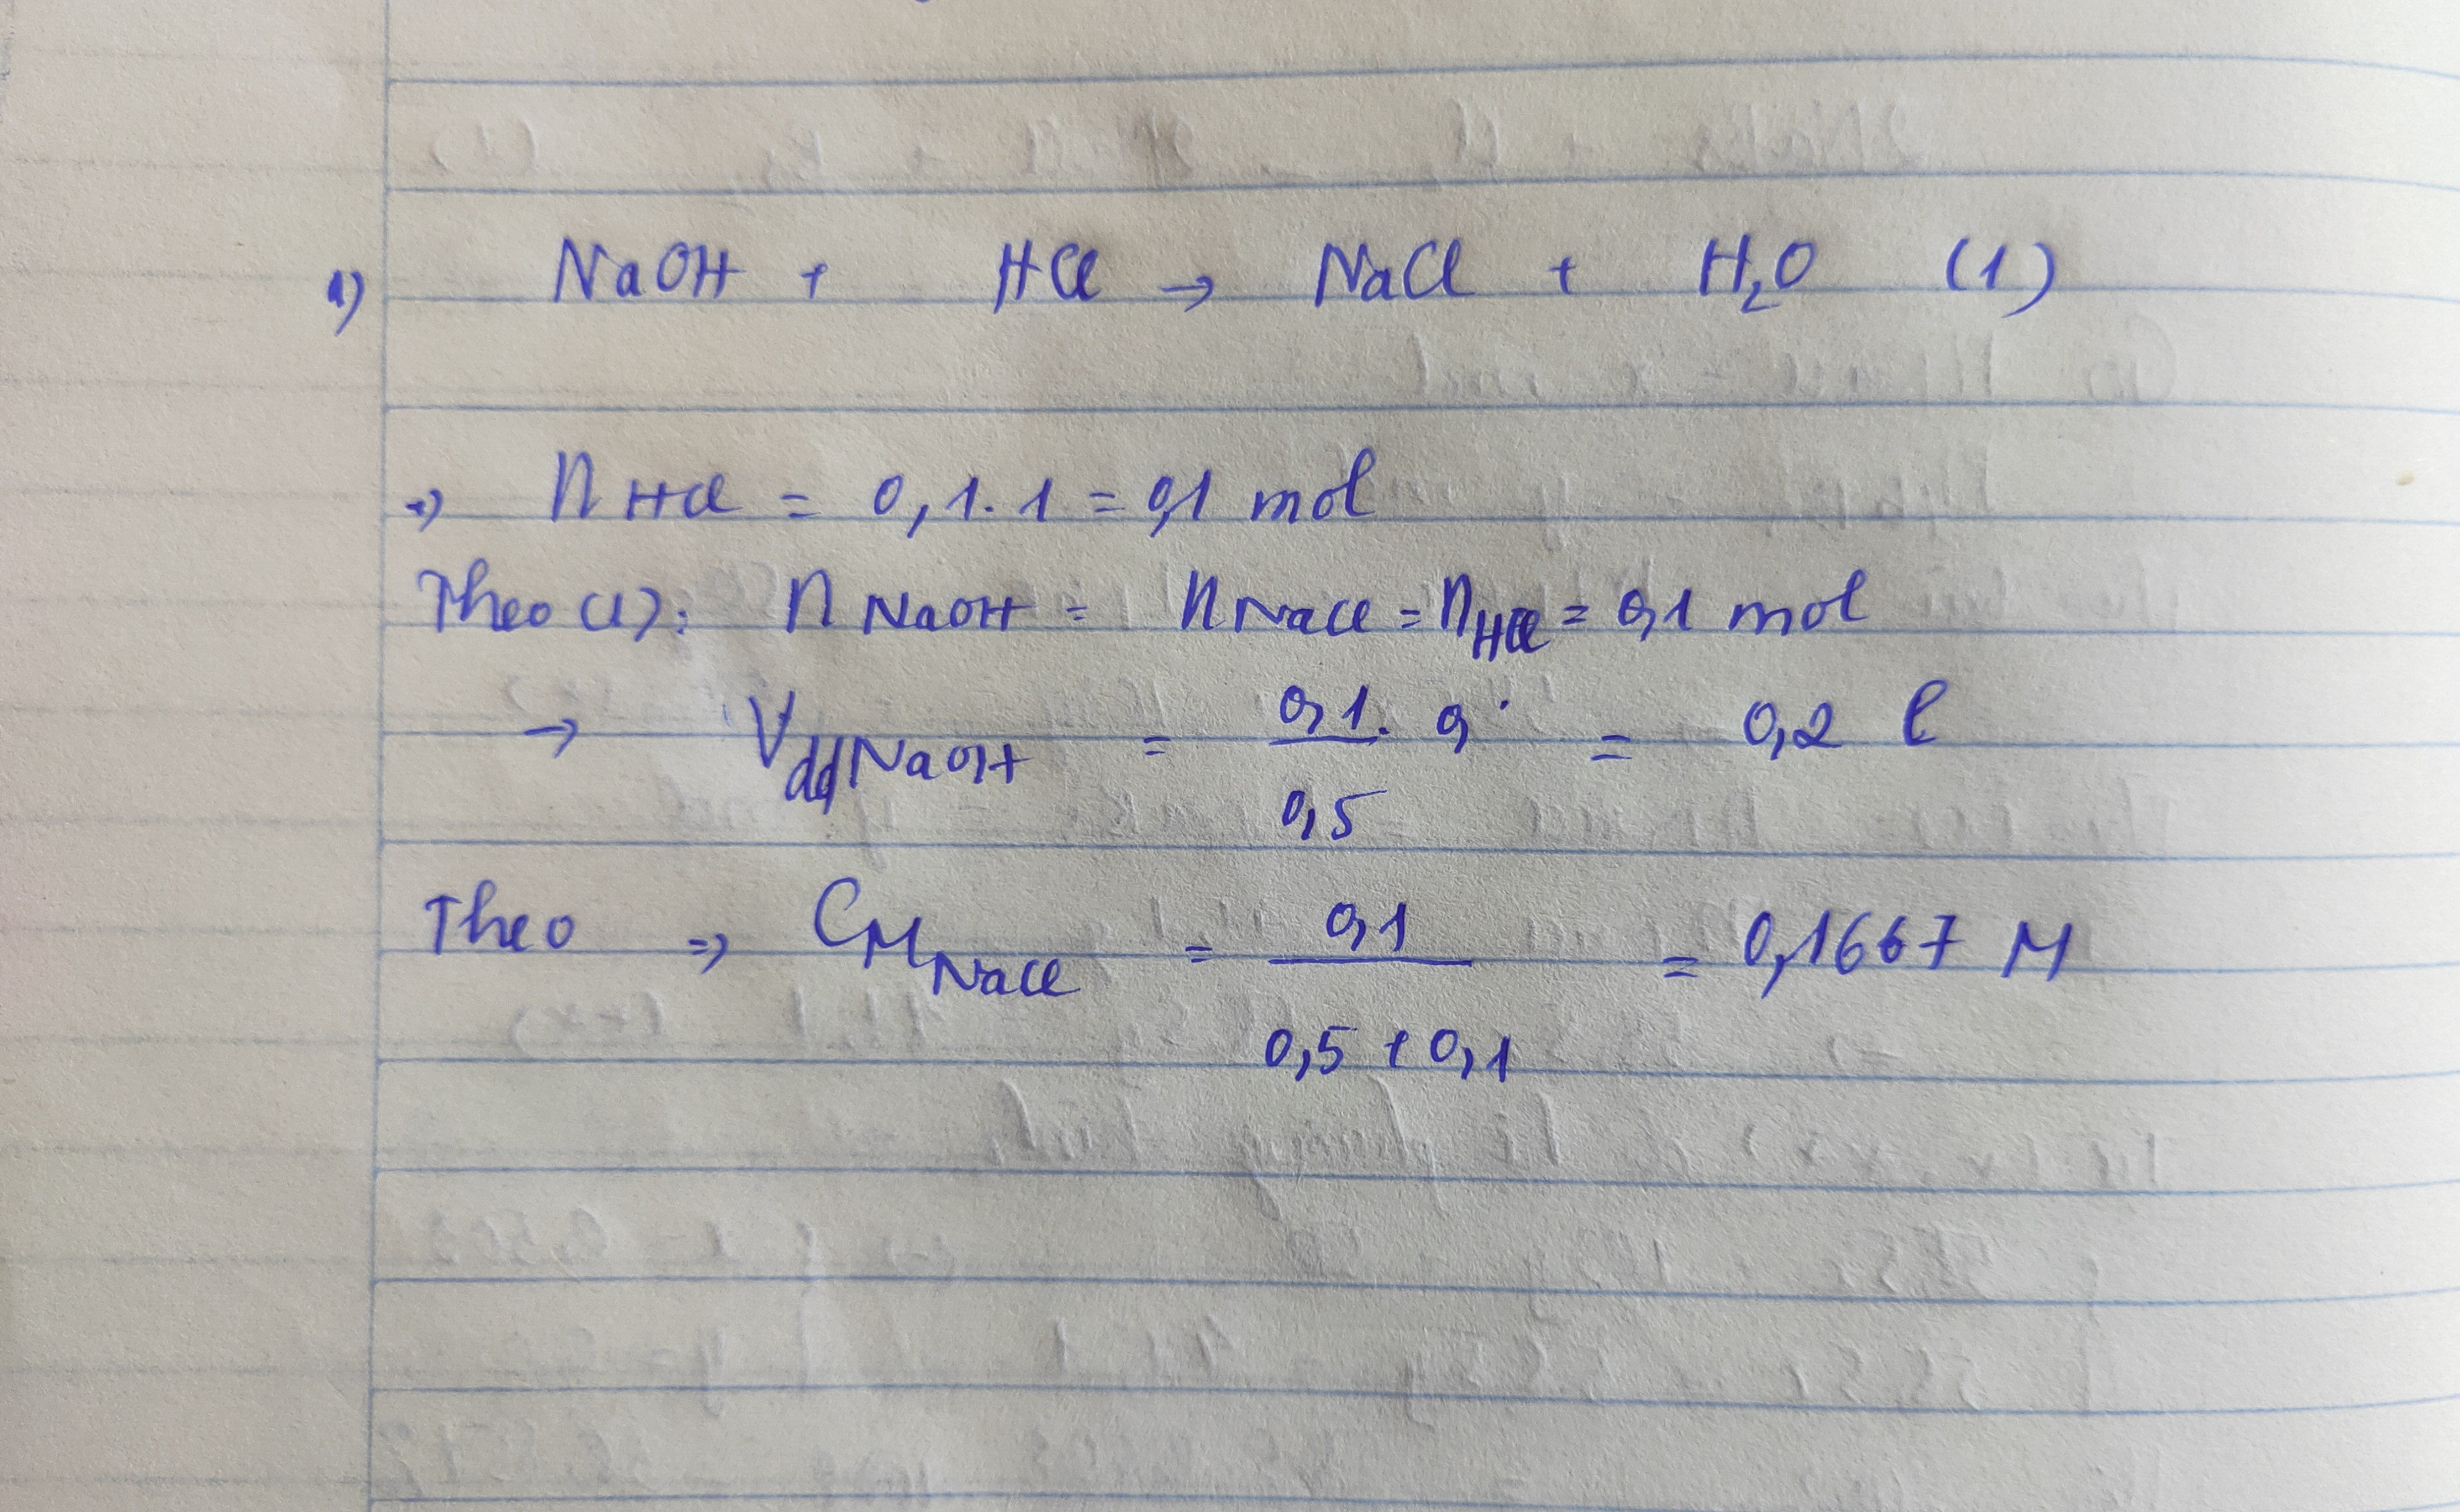 1) NaOH + HCl → NaCl + H₂O (1)
→ nHCl = 0,1.1 = 0,1 mol
Theo (1): nNaOH = nNaCl = nHCl = 0,1 mol
→ VddNaOH = 0,1. 0,/0,5 = 0,2 l
Theo => CMNaCl = 0,1/0,5 + 0,1 = 0,1667 M